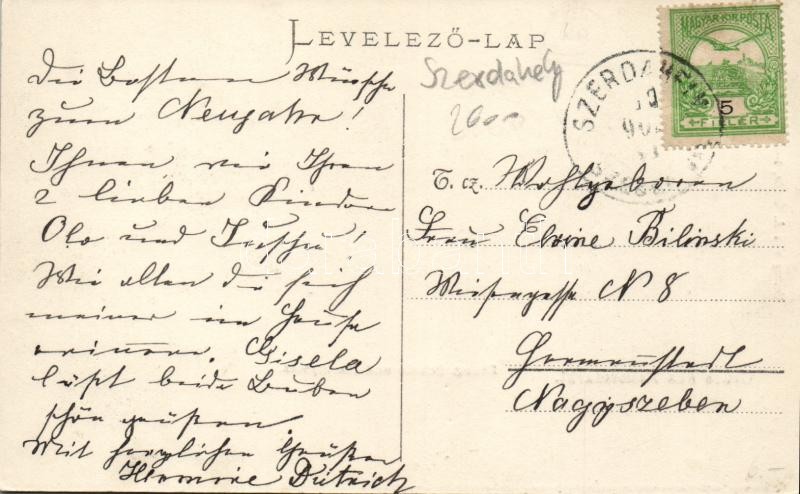 LEVELEZŐ-LAP
MAGYAR KIR. POSTA
5
FILLÉR
SZERDAHELY
Szerdahely
2600
Die Besten Wünsche
zum Neujahr!
Ihnen wie Ihren
2 lieben Kindern
Olo und
Wie allen die sich
meiner im Hause
erinnern. Gisela
läßt beide Buben
schön grüßen.
Mit herzlichen Grüßen
Hermine Dietrich
T. cz. Wohlgeboren
Frau Elvine Bilinski
Wiesengasse N 8
Hermannstadt
Nagyszeben